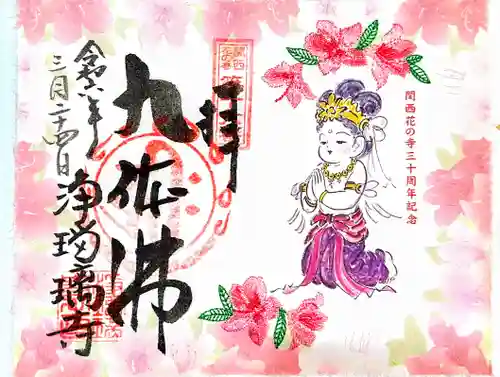 関西花の寺三十周年記念
奉拝
九体佛
令和六年
三月二十四日
浄瑠璃寺